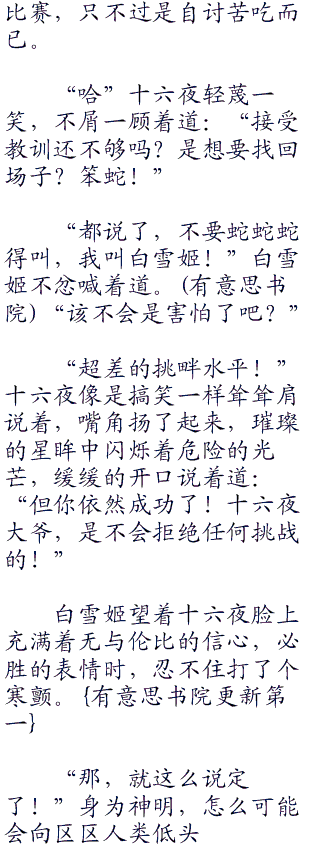 比赛，只不过是自讨苦吃而
已。
“哈”十六夜轻蔑一
笑，不屑一顾着道：“接受
教训还不够吗？是想要找回
场子？笨蛇！”
“都说了，不要蛇蛇蛇
得叫，我叫白雪姬！”白雪
姬不忿喊着道。(有意思书
院)“该不会是害怕了吧？”
“超差的挑畔水平！”
十六夜像是搞笑一样耸耸肩
说着，嘴角扬了起来，璀璨
的星眸中闪烁着危险的光
芒，缓缓的开口说着道：
“但你依然成功了！十六夜
大爷，是不会拒绝任何挑战
的！”
白雪姬望着十六夜脸上
充满着无与伦比的信心，必
胜的表情时，忍不住打了个
寒颤。{有意思书院更新第
一}
“那，就这么说定
了！”身为神明，怎么可能
会向区区人类低头